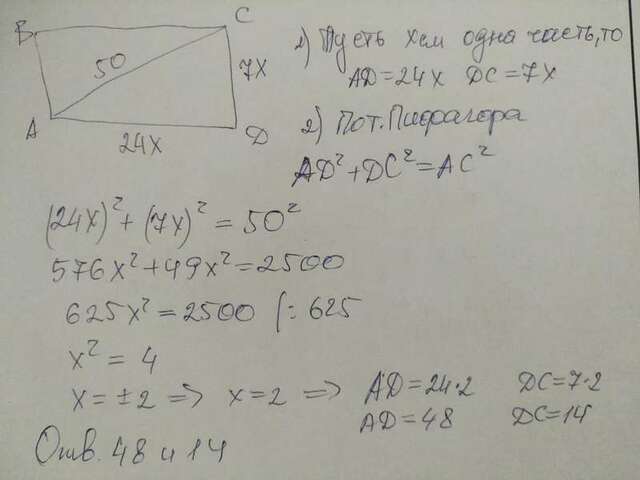 B C
50
7x
A
24x
D
1) Пусть x см одна часть, то
AD=24x DC=7x
2) По т. Пифагора
AD²+DC²=AC²
(24x)²+(7x)²=50²
576x²+49x²=2500
625x²=2500 |:625
x²=4
x=±2 => x=2 => AD=24·2 DC=7·2
AD=48 DC=14
Отв. 48 и 14